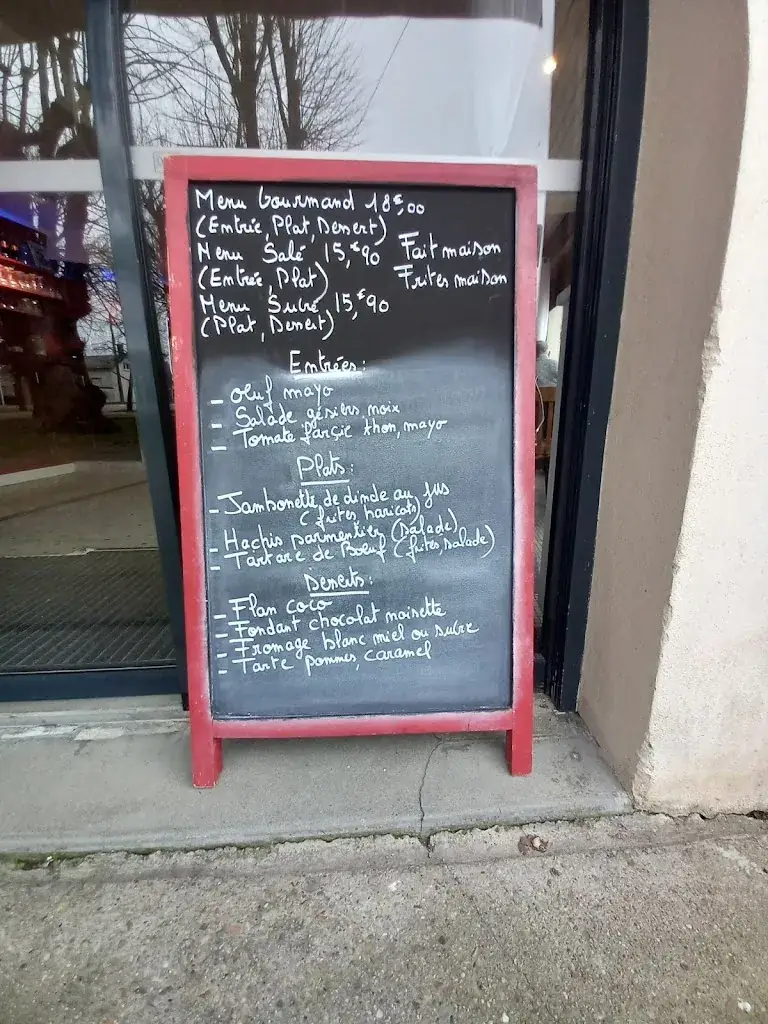 Menu Gourmand 18€,00
(Entrée, Plat, Dessert)
Menu Salé 15,€90 Fait maison
(Entrée, Plat) Frites maison
Menu Sucré 15,€90
(Plat, Dessert)
Entrées:
- oeuf mayo
- Salade gésiers, noix
- Tomate farçie thon, mayo
Plats:
- Jambonette de dinde au jus
(frites haricots)
- Hachis parmentier (salade)
- Tartare de Boeuf (frites, salade)
Desserts:
- Flan coco
- Fondant chocolat noisette
- Fromage blanc miel ou sucre
- Tarte pommes, caramel